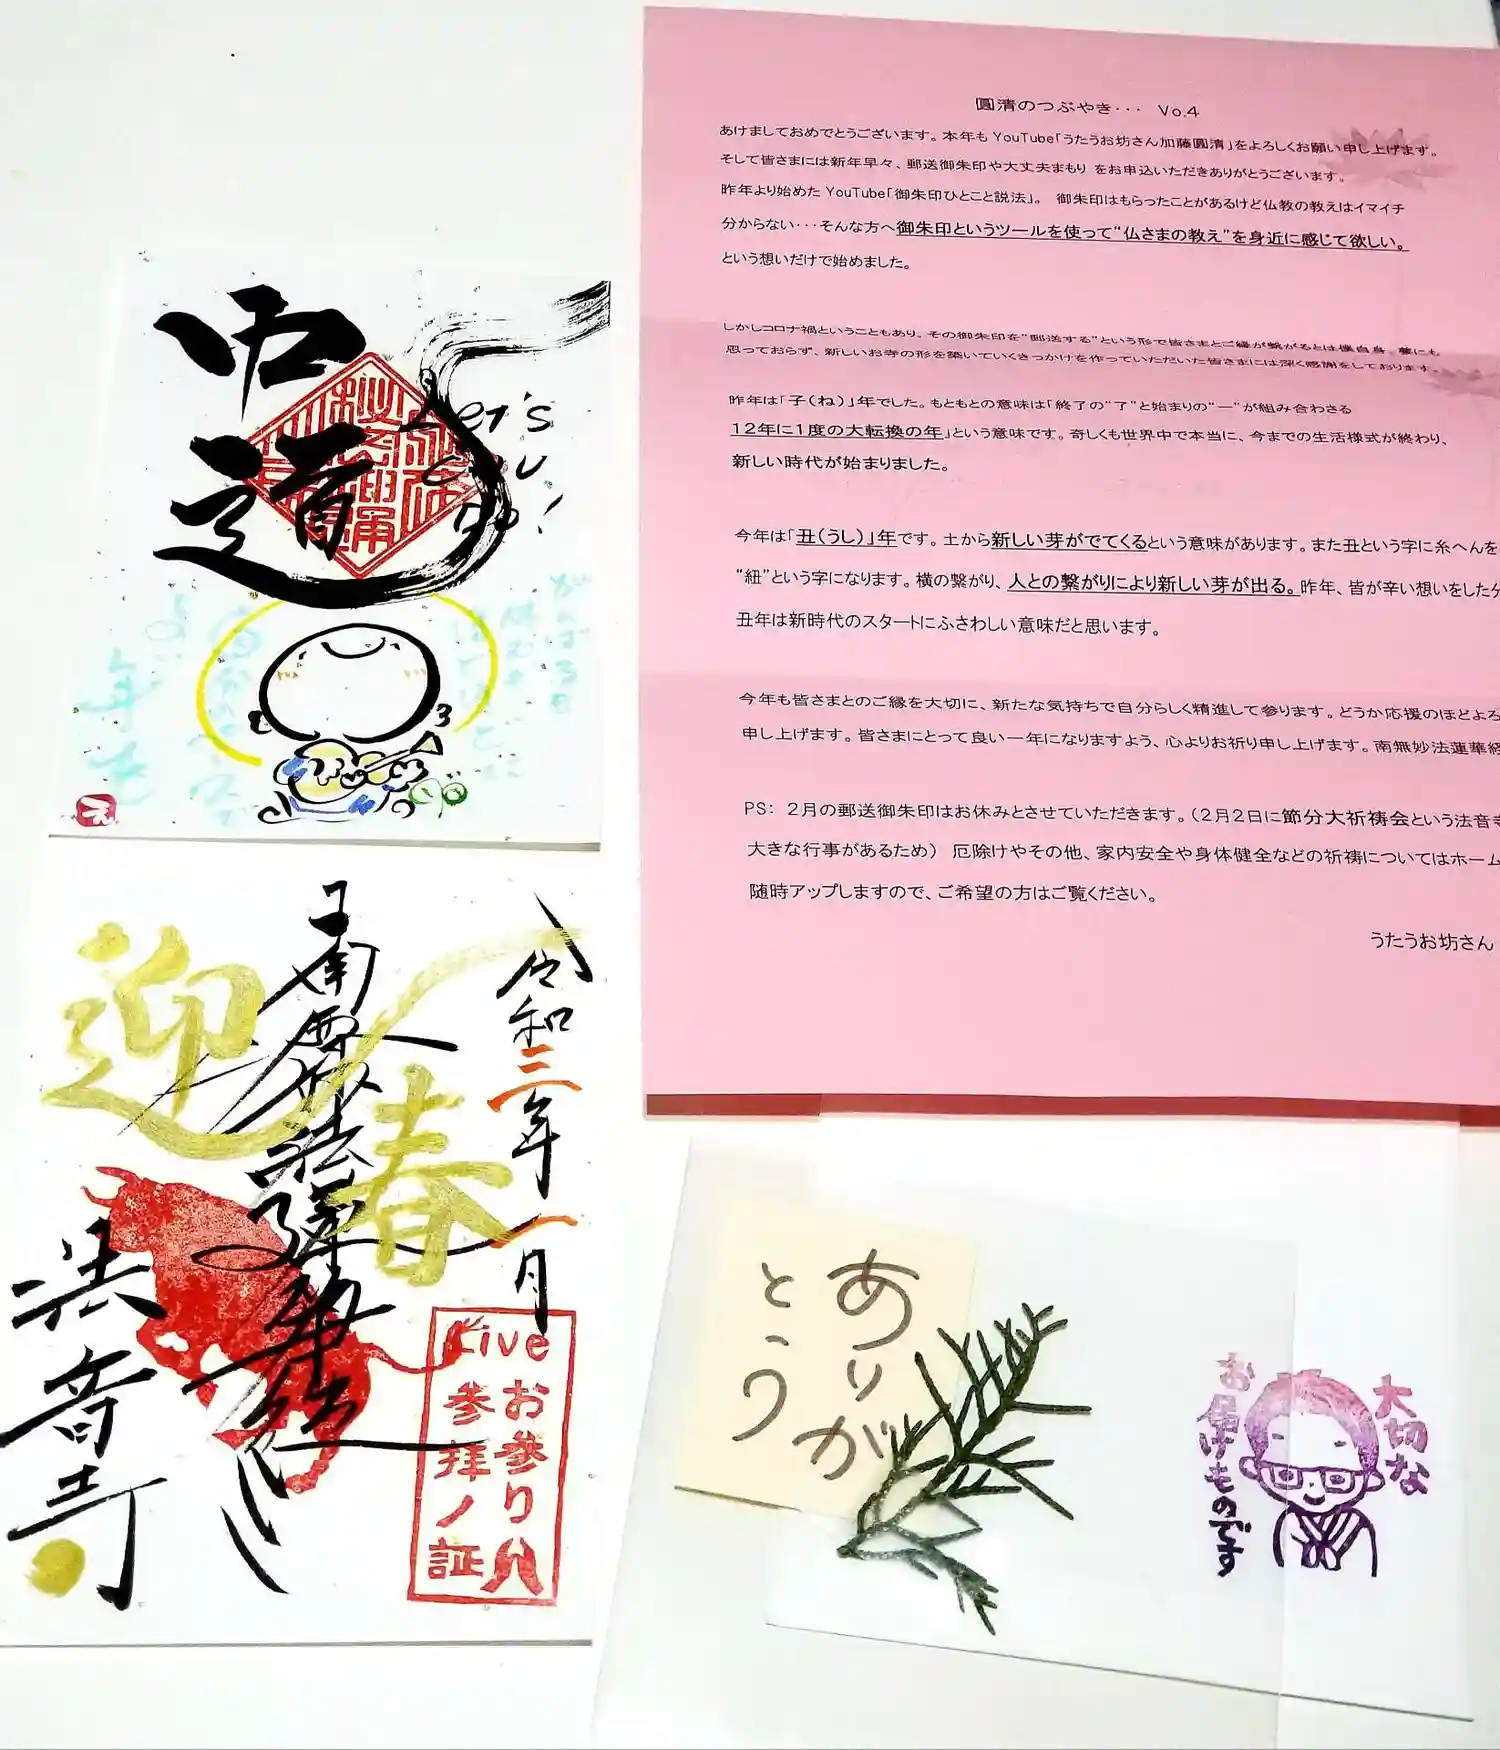 圓清のつぶやき・・・ Vo.4
あけましておめでとうございます。本年も YouTube「うたうお坊さん加藤圓清」をよろしくお願い申し上げます。
そして皆さまには新年早々、郵送御朱印や大丈夫まもり をお申込いただきありがとうございます。
昨年より始めた YouTube「御朱印ひとこと説法」。 御朱印はもらったことがあるけど仏教の教えはイマイチ
分からない・・・そんな方へ御朱印というツールを使って“仏さまの教え”を身近に感じて欲しい。
という想いだけで始めました。
しかしコロナ禍ということもあり。その御朱印を“郵送する”という形で皆さまとご縁が繋がるとは僕自身、夢にも
思っておらず、新しいお寺の形を築いていくきっかけを作っていただいた皆さまには深く感謝をしております。
昨年は「子（ね）」年でした。もともとの意味は「終了の“了”と始まりの“一”が組み合わさる
１２年に１度の大転換の年」という意味です。奇しくも世界中で本当に、今までの生活様式が終わり、
新しい時代が始まりました。
今年は「丑（うし）」年です。土から新しい芽がでてくるという意味があります。また丑という字に糸へんを
“紐”という字になります。横の繋がり、人との繋がりにより新しい芽が出る。昨年、皆が辛い想いをした分
丑年は新時代のスタートにふさわしい意味だと思います。
今年も皆さまとのご縁を大切に、新たな気持ちで自分らしく精進して参ります。どうか応援のほどよろ
申し上げます。皆さまにとって良い一年になりますよう、心よりお祈り申し上げます。南無妙法蓮華経
PS: ２月の郵送御朱印はお休みとさせていただきます。（２月２日に節分大祈祷会という法音寺
大きな行事があるため） 厄除けやその他、家内安全や身体健全などの祈祷についてはホーム
随時アップしますので、ご希望の方はご覧ください。
うたうお坊さん
中道
Let's
令和三年一月
迎春
南無妙法蓮華経
法音寺
Live
お参り
参拝ノ証
ありが
とう
大切な
お届けものです